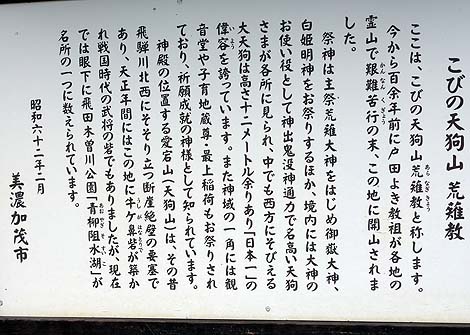 こびの天狗山 荒薙教
ここは、こびの天狗山 荒薙教と称します。
今から百余年前に戸田よき教祖が各地の
霊山で艱難苦行の末、この地に開山されま
した。
祭神は主祭荒薙大神をはじめ御嶽大神、
白姫明神をお祭りするほか、境内には大神の
お使い役として神出鬼没神通力で名高い天狗
さまが各所に見られ、中でも西方にそびえる
大天狗は高さ十二メートル余りあり「日本一」の
偉容を誇っています。また神域の一角には観
音堂や子育地蔵尊・最上稲荷もお祭りされ
ており、祈願成就の神様として知られています。
神殿の位置する愛宕山(天狗山)は、その昔
飛騨川北西にそそり立つ断崖絶壁の要塞で
あり、天正年間にはこの地に牛ケ鼻砦が築か
れ戦国時代の武将の砦でもありましたが、現在
では眼下に飛田木曽川公園「青柳阻水湖」が
名所の一つに数えられています。
昭和六十二年二月
美濃加茂市